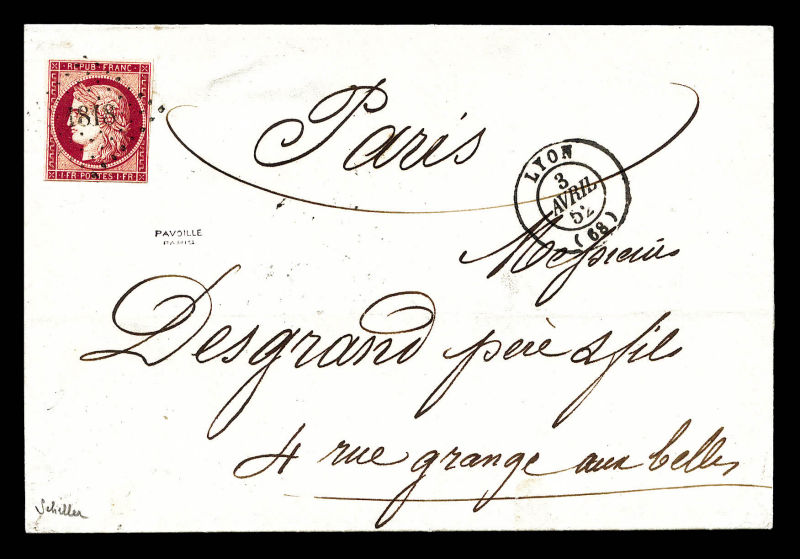 REPUB FRANC
1818
1·FR·POSTES·1·FR
Paris
LYON
3
AVRIL
52
(68)
PAVOILLE
PARIS
Messieurs
Desgrand père & fils
4 rue grange aux belles
Schiller